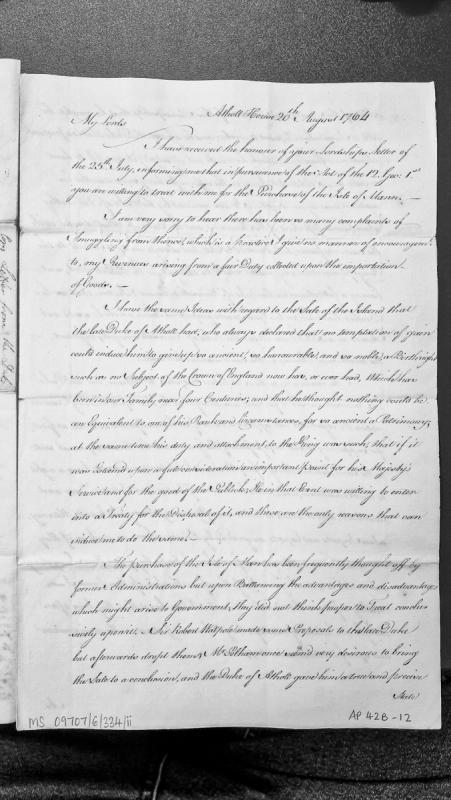 Atholl House 20th August 1764
My Lords
I have received the honour of your Lordships Letter of
the 25th July, informing me that in pursuance of the Act of the 12. Geo: 1st
you are willing to treat with me for the Purchase of the Isle of Mann. —
I am very sorry to hear there has been so many complaints of
Smuggling from thence, which is a practice I give no manner of encouragemt
to, my Revenues arising from a fair Duty collected upon the importation
of Goods. —
I have the same Ideas with regard to the Sale of the Island that
the late Duke of Atholl had, who always declared that no temptation of gain
could induce him to give up so ancient, so honourable, and so noble, a Birthright
such as no Subject of the Crown of England now has, or ever had, Which has
been in our Family near four Centuries; and that he thought nothing could be
an Equivalent to one of his Rank and Circumstances, for so ancient a Patrimony,
at the same time his duty and attachment to the King was such, that if it
was Esteemed upon a full consideration an important point for his Majesty's
Service and for the good of the Publick, He in that Event was willing to enter
into a Treaty for the Disposal of it, and these are the only reasons that can
induce me to do the same. —
The purchase of the Isle of Man has been frequently thought off by
former Administrations but upon Ballancing the advantages and disadvantages
which might arise to Government, they did not think proper to Treat conclu-
sively upon it. Sir Robert Walpole made some Proposals to the late Duke
but afterwards dropt them, Mr Pelham once seemd very desirous to bring
the Sale to a conclusion, and the Duke of Atholl gave him a true and precise
State
Copy Letter from the Duke
MS 09707/6/334/ii
AP 42B-12